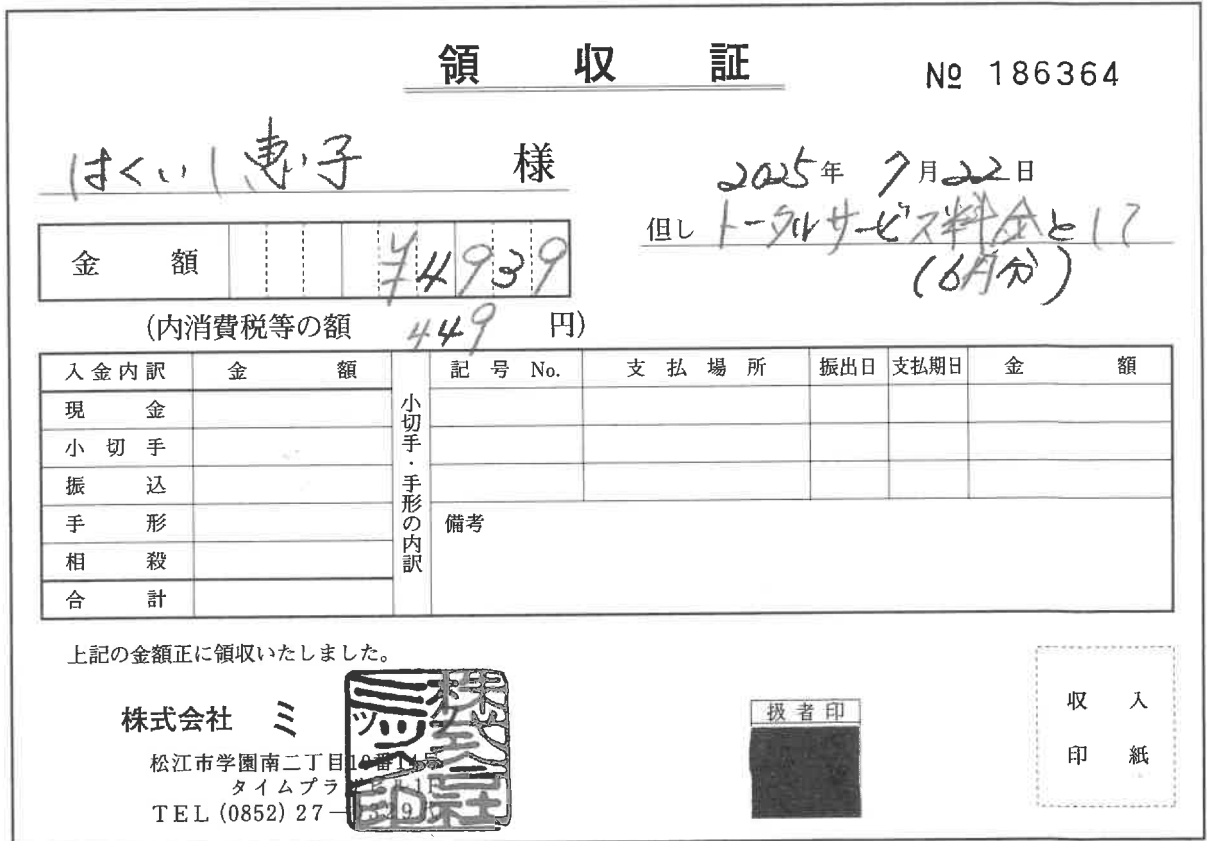 領収証
№ 186364
はくいし恵子 様
2025年 7月22日
但し トータルサービス料金として
(6月分)
金額 ¥4939
(内消費税等の額 449 円)
入金内訳 金額 小切手・手形の内訳 記号No. 支払場所 振出日 支払期日 金額
現金
小切手
振込
手形 備考
相殺
合計
上記の金額正に領収いたしました。
株式会社 ミック
松江市学園南二丁目10番14号
タイムプラザビル1F
TEL (0852) 27―
扱者印
収入
印紙